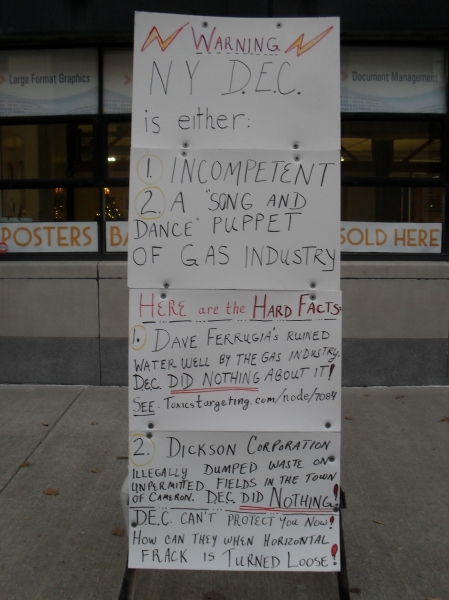 WARNING
NY D.E.C.
is either:
1. INCOMPETENT
2. A "SONG AND
DANCE" PUPPET
OF GAS INDUSTRY
HERE are the HARD FACTS:
1. DAVE FERRUGIA'S RUINED
WATER WELL BY THE GAS INDUSTRY.
D.E.C. DID NOTHING ABOUT IT!
SEE: Toxicstargeting.com/node/7084
2. DICKSON CORPORATION
ILLEGALLY DUMPED WASTE ON
UNPERMITTED FIELDS IN THE TOWN
OF CAMERON. D.E.C. DID NOTHING!
D.E.C. CAN'T PROTECT YOU NOW!
HOW CAN THEY WHEN HORIZONTAL
FRACK IS TURNED LOOSE!
Large Format Graphics
Document Management
POSTERS
SOLD HERE